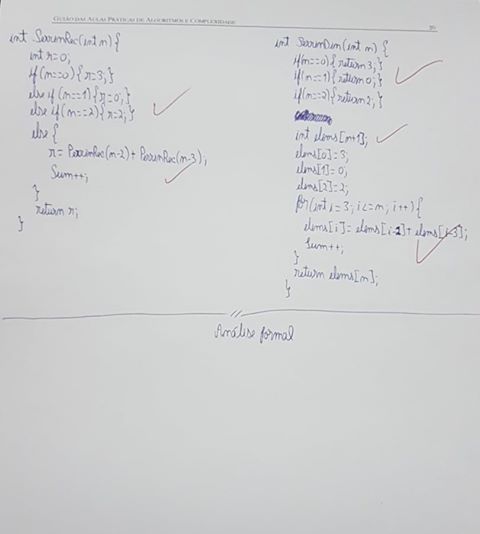 GUIÃO DAS AULAS PRÁTICAS DE ALGORITMOS E COMPLEXIDADE
int PerrinRec(int n){
int r=0;
if(n==0){r=3;}
else if(n==1){r=0;}
else if(n==2){r=2;}
else {
r= PerrinRec(n-2)+PerrinRec(n-3);
Sum++;
}
return r;
}
int PerrinDin(int n) {
if(n==0){return 3;}
if(n==1){return 0;}
if(n==2){return 2;}
int elems[n+1];
elems[0]=3;
elems[1]=0;
elems[2]=2;
for(int i=3; i<=n; i++){
elems[i]= elems[i-2]+ elems[i-3];
Sum++;
}
return elems[n];
}
//
Análise formal